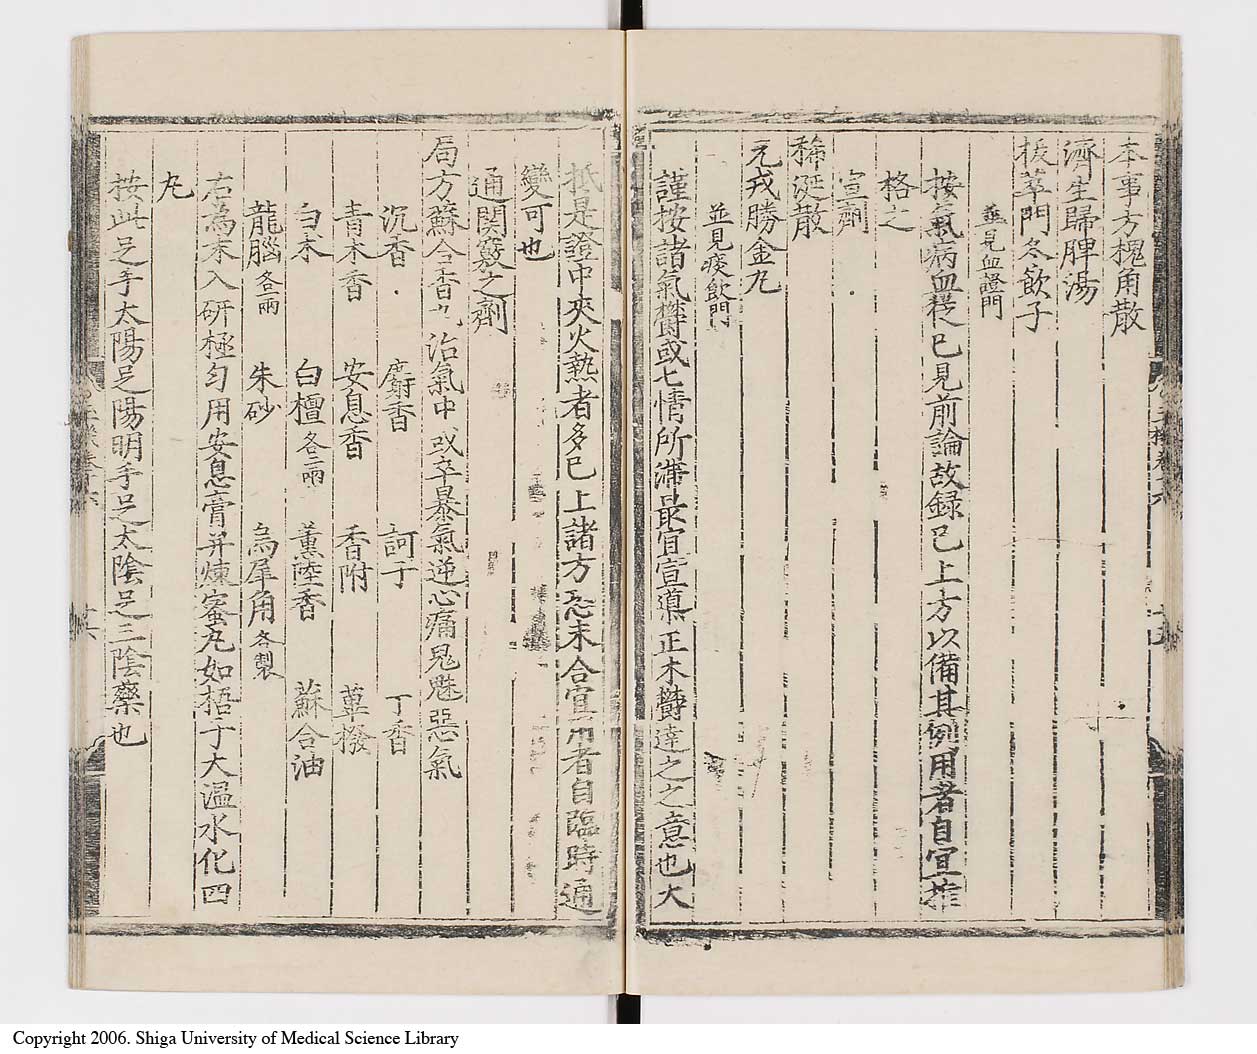 本事方槐角散
濟生歸脾湯
拔萃門冬飲子
並見血證門
按氣病血從已見前論故録已上方以備其例用者自宜推
格之
宣劑
稀涎散
元戎勝金丸
並見痰飲門
謹按諸氣欝或七情所滯最宜宣導正木欝達之之意也大
抵是證中夾火熱者多已上諸方恐未合宜用者自臨時通
變可也
通関竅之劑
局方蘇合香丸治氣中或卒暴氣逆心痛鬼魅惡氣
沉香 麝香 訶子 丁香
青木香 安息香 香附 蓽撥
白朮 白檀各二兩 薰陸香 蘇合油
龍腦各一兩 朱砂 烏犀角各製
右為末入研極匀用安息膏并煉蜜丸如梧子大温水化四
丸
按此足手太陽足陽明手足太陰足三陰藥也
Copyright 2006. Shiga University of Medical Science Library